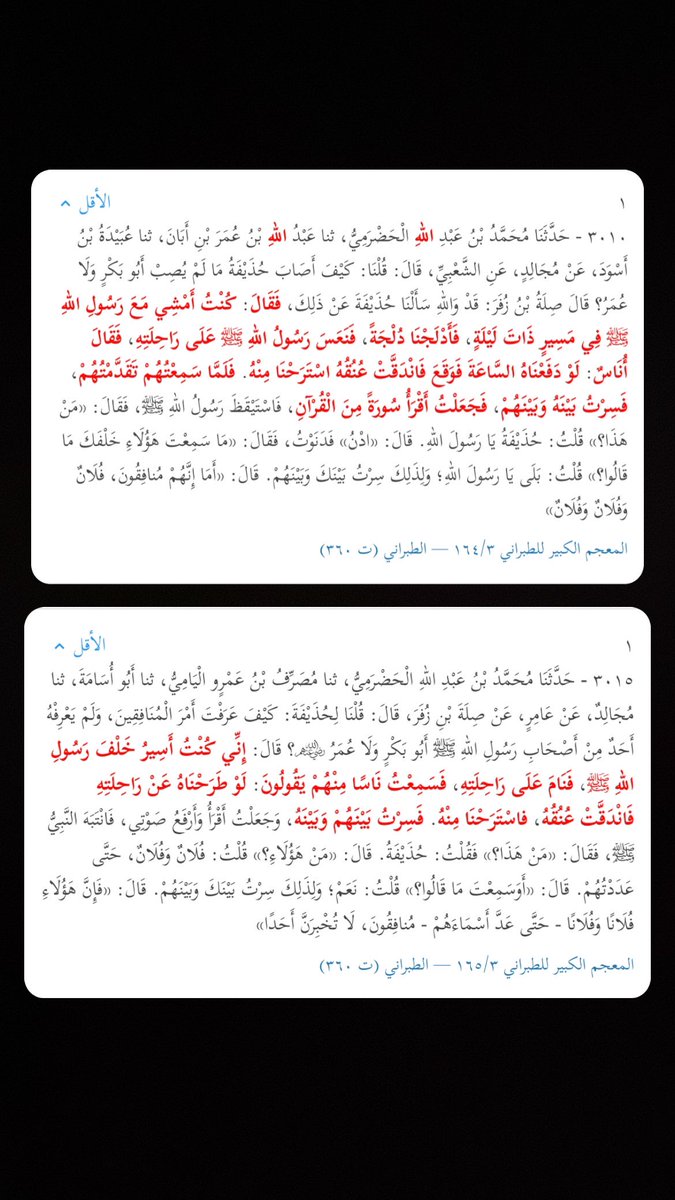 ١
الأقل
٣٠١٠ - حَدَّثَنَا مُحَمَّدُ بْنُ عَبْدِ اللهِ الْحَضْرَمِيُّ، ثنا عَبْدُ اللهِ بْنُ عُمَرَ بْنِ أَبَانَ، ثنا عُبَيْدَةُ بْنُ
أَسْوَدَ، عَنْ مُجَالِدٍ، عَنِ الشَّعْبِيِّ، قَالَ: قُلْنَا: كَيْفَ أَصَابَ حُذَيْفَةُ مَا لَمْ يُصِبْ أَبُو بَكْرٍ وَلَا
عُمَرُ؟ قَالَ صِلَةُ بْنُ زُفَرَ: قَدْ وَاللهِ سَأَلْنَا حُذَيْفَةَ عَنْ ذَلِكَ، فَقَالَ: كُنْتُ أَمْشِي مَعَ رَسُولِ اللهِ
ﷺ فِي مَسِيرٍ ذَاتَ لَيْلَةٍ، فَأَدْلَجْنَا دُلْجَةً، فَنَعَسَ رَسُولُ اللهِ ﷺ عَلَى رَاحِلَتِهِ، فَقَالَ
أُنَاسٌ: لَوْ دَفَعْنَاهُ السَّاعَةَ فَوَقَعَ فَانْدَقَّتْ عُنُقُهُ اسْتَرَحْنَا مِنْهُ. فَلَمَّا سَمِعْتُهُمْ تَقَدَّمْتُهُمْ،
فَسِرْتُ بَيْنَهُ وَبَيْنَهُمْ، فَجَعَلْتُ أَقْرَأُ سُورَةً مِنَ الْقُرْآنِ، فَاسْتَيْقَظَ رَسُولُ اللهِ ﷺ، فَقَالَ: «مَنْ
هَذَا؟» قُلْتُ: حُذَيْفَةُ يَا رَسُولَ اللهِ. قَالَ: «ادْنُ» فَدَنَوْتُ، فَقَالَ: «مَا سَمِعْتَ هَؤُلَاءِ خَلْفَكَ مَا
قَالُوا؟» قُلْتُ: بَلَى يَا رَسُولَ اللهِ؛ وَلِذَلِكَ سِرْتُ بَيْنَكَ وَبَيْنَهُمْ. قَالَ: «أَمَا إِنَّهُمْ مُنَافِقُونَ، فُلَانٌ
وَفُلَانٌ وَفُلَانٌ»
المعجم الكبير للطبراني ١٦٤/٣ — الطبراني (ت ٣٦٠)
١
الأقل
٣٠١٥ - حَدَّثَنَا مُحَمَّدُ بْنُ عَبْدِ اللهِ الْحَضْرَمِيُّ، ثنا مُصَرِّفُ بْنُ عَمْرٍو الْيَامِيُّ، ثنا أَبُو أُسَامَةَ، ثنا
مُجَالِدٌ، عَنْ عَامِرٍ، عَنْ صِلَةَ بْنِ زُفَرَ، قَالَ: قُلْنَا لِحُذَيْفَةَ: كَيْفَ عَرَفْتَ أَمْرَ الْمُنَافِقِينَ، وَلَمْ يَعْرِفْهُ
أَحَدٌ مِنْ أَصْحَابِ رَسُولِ اللهِ ﷺ أَبُو بَكْرٍ وَلَا عُمَرُ ﵄؟ قَالَ: إِنِّي كُنْتُ أَسِيرُ خَلْفَ رَسُولِ
اللهِ ﷺ، فَنَامَ عَلَى رَاحِلَتِهِ، فَسَمِعْتُ نَاسًا مِنْهُمْ يَقُولُونَ: لَوْ طَرَحْنَاهُ عَنْ رَاحِلَتِهِ
فَانْدَقَّتْ عُنُقُهُ، فاسْتَرَحْنَا مِنْهُ. فَسِرْتُ بَيْنَهُمْ وَبَيْنَهُ، وَجَعَلْتُ أَقْرَأُ وَأَرْفَعُ صَوْتِي، فَانْتَبَهَ النَّبِيُّ
ﷺ، فَقَالَ: «مَنْ هَذَا؟» فَقُلْتُ: حُذَيْفَةُ. قَالَ: «مَنْ هَؤُلَاءِ؟» قُلْتُ: فُلَانٌ وَفُلَانٌ، حَتَّى
عَدَدْتُهُمْ. قَالَ: «أَوَسَمِعْتَ مَا قَالُوا؟» قُلْتُ: نَعَمْ؛ وَلِذَلِكَ سِرْتُ بَيْنَكَ وَبَيْنَهُمْ. قَالَ: «فَإِنَّ هَؤُلَاءِ
فُلَانًا وَفُلَانًا - حَتَّى عَدَّ أَسْمَاءَهُمْ - مُنَافِقُونَ، لَا تُخْبِرَنَّ أَحَدًا»
المعجم الكبير للطبراني ١٦٥/٣ — الطبراني (ت ٣٦٠)